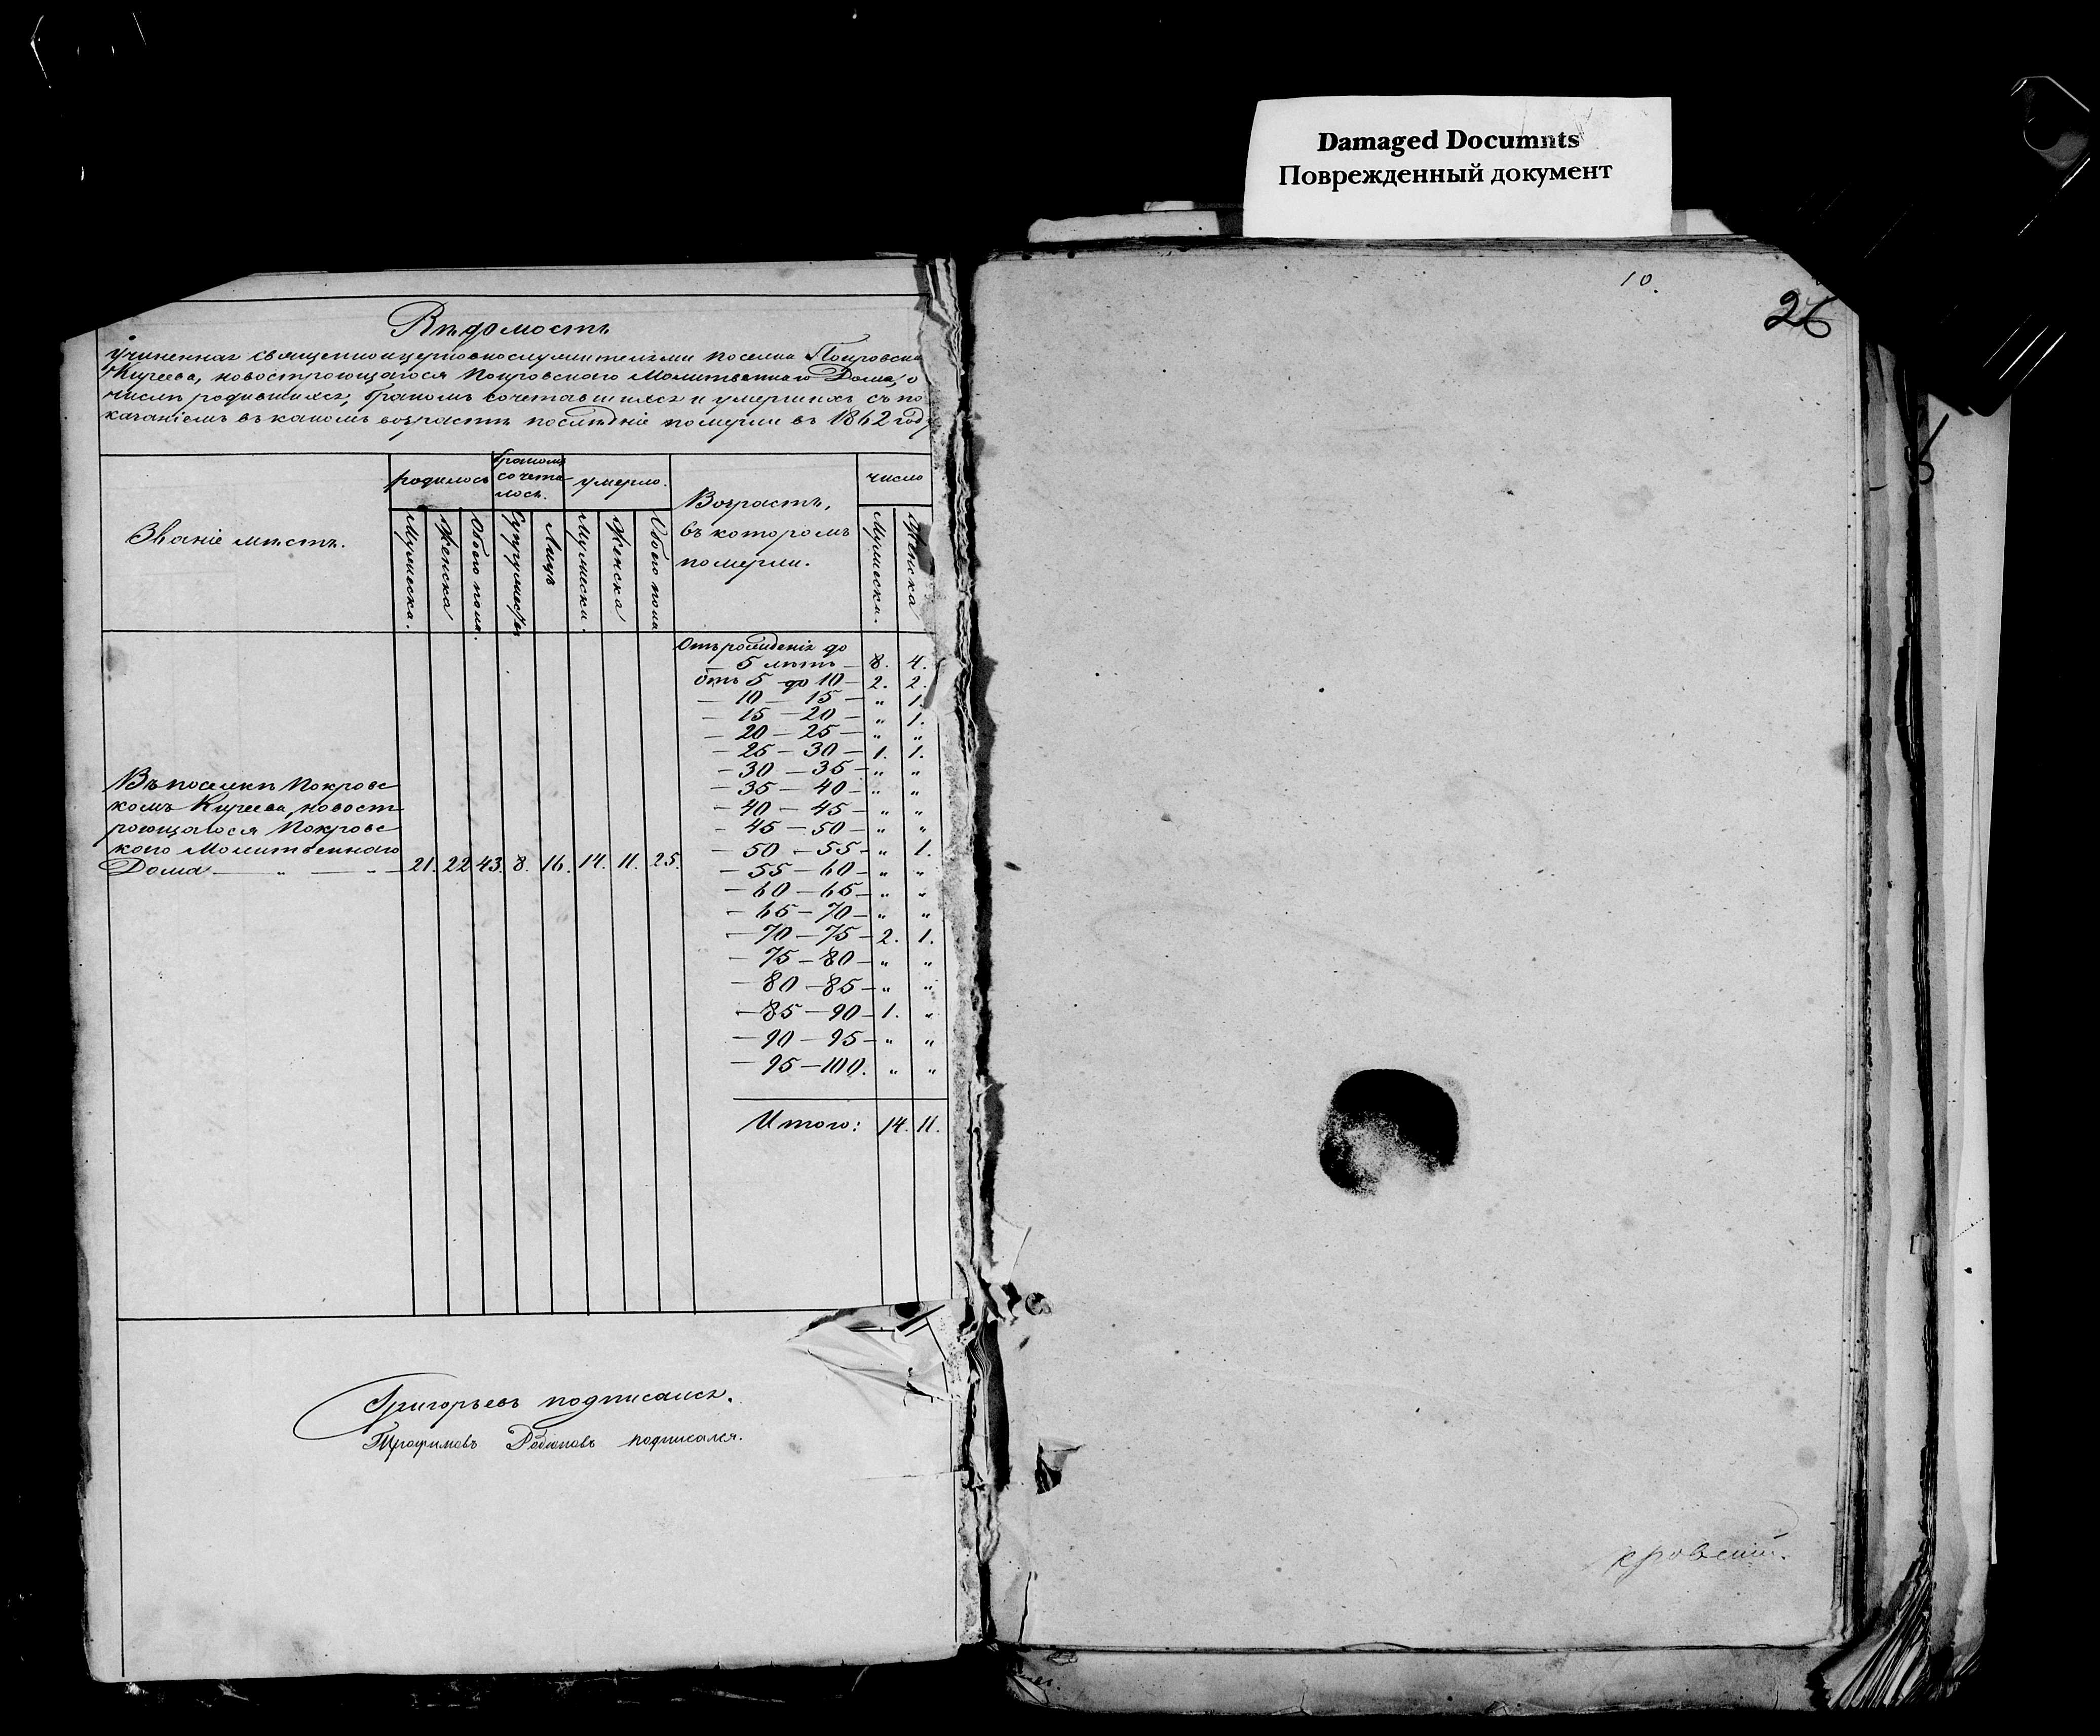 Вѣдомость
учиненная священноцерковнослужителями поселка Покровска
Киреева, новостроющагося Покровскаго Молитвеннаго Дома, о
числѣ родившихся, бракомъ сочетавшихся и умершихъ съ по
казаніемъ въ какомъ возрастѣ послѣдніе померли въ 1862 году
Званіе мѣстъ.
родилось
бракомъ сочета лось.
умерло.
Возрастъ, въ которомъ померли.
число
Мужеска.
Женска
Обоего пола.
Супружествъ
Лицъ
Мужеска.
Женска
Обоего пола
Мужеска.
Женска
Отъ рожденія до
— 5 лѣтъ — 8. 4.
отъ 5 до 10 — 2. 2.
— 10 — 15 — " 1.
— 15 — 20 — " 1.
— 20 — 25 — " "
— 25 — 30 — 1. 1.
— 30 — 35 — " "
— 35 — 40 — " "
— 40 — 45 — " "
— 45 — 50 — " "
— 50 — 55 — " 1.
— 55 — 60 — " "
— 60 — 65 — " "
— 65 — 70 — " "
— 70 — 75 — 2. 1.
— 75 — 80 — " "
— 80 — 85 — " "
— 85 — 90 — 1. "
— 90 — 95 — " "
— 95 — 100. " "
Итого: 14. 11.
Въ поселкѣ Покровс
комъ Киреева, новост
роющагося Покровс
каго Молитвеннаго
Дома — " — " — 21. 22. 43. 8. 16. 14. 11. 25.
Григорьевъ подписался.
Трофимовъ подписался.
Damaged Documnts
Поврежденный документ
10.
26
кровскій.